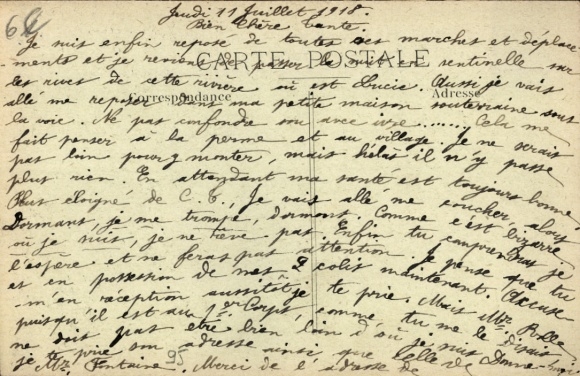 Jeudi 11 Juillet 1918.
Bien Chère Tante.
Je suis enfin reposé de toutes ces marches et déplace-
ments et je reviens de passer la nuit en sentinelle sur
CARTE POSTALE
les rives de cette rivière où est Lucie. Aussi je vais
Correspondance
Adresse
alle me reposer dans ma petite maison souterraine sous
la voie. Ne pas confondre sou avec ivre...... Cela me
fait penser à la perme et au village. Je ne serais
pas loin pour y monter, mais hélas il n'y passe
plus rien. En attendant ma santé est toujours bonne.
Plus éloigné de C. C., Je vais allé me coucher, alors
Dormans, je me trompe, dormons. Comme c'est bizarre.
où je suis, je ne rêve pas. Enfin tu comprendras je
l'espère et ne feras pas attention. Je pense que tu
es en possession de mes 2 colis maintenant. Accuse
-m'en réception aussitôt je te prie. Mais Mr. Rolle
puisqu'il est au 1er Corps, comme tu me le disais
ne doit pas etre bien loin d'où je suis Donne-moi
je te prie son adresse ainsi que celle de
Mr. Fontaine. Merci de l'adresse de
95